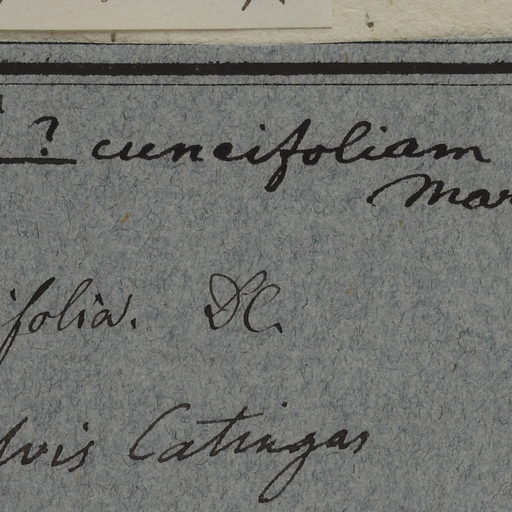 ? cuneifoliam
Mar
ifolia. DC.
lvis Catingas